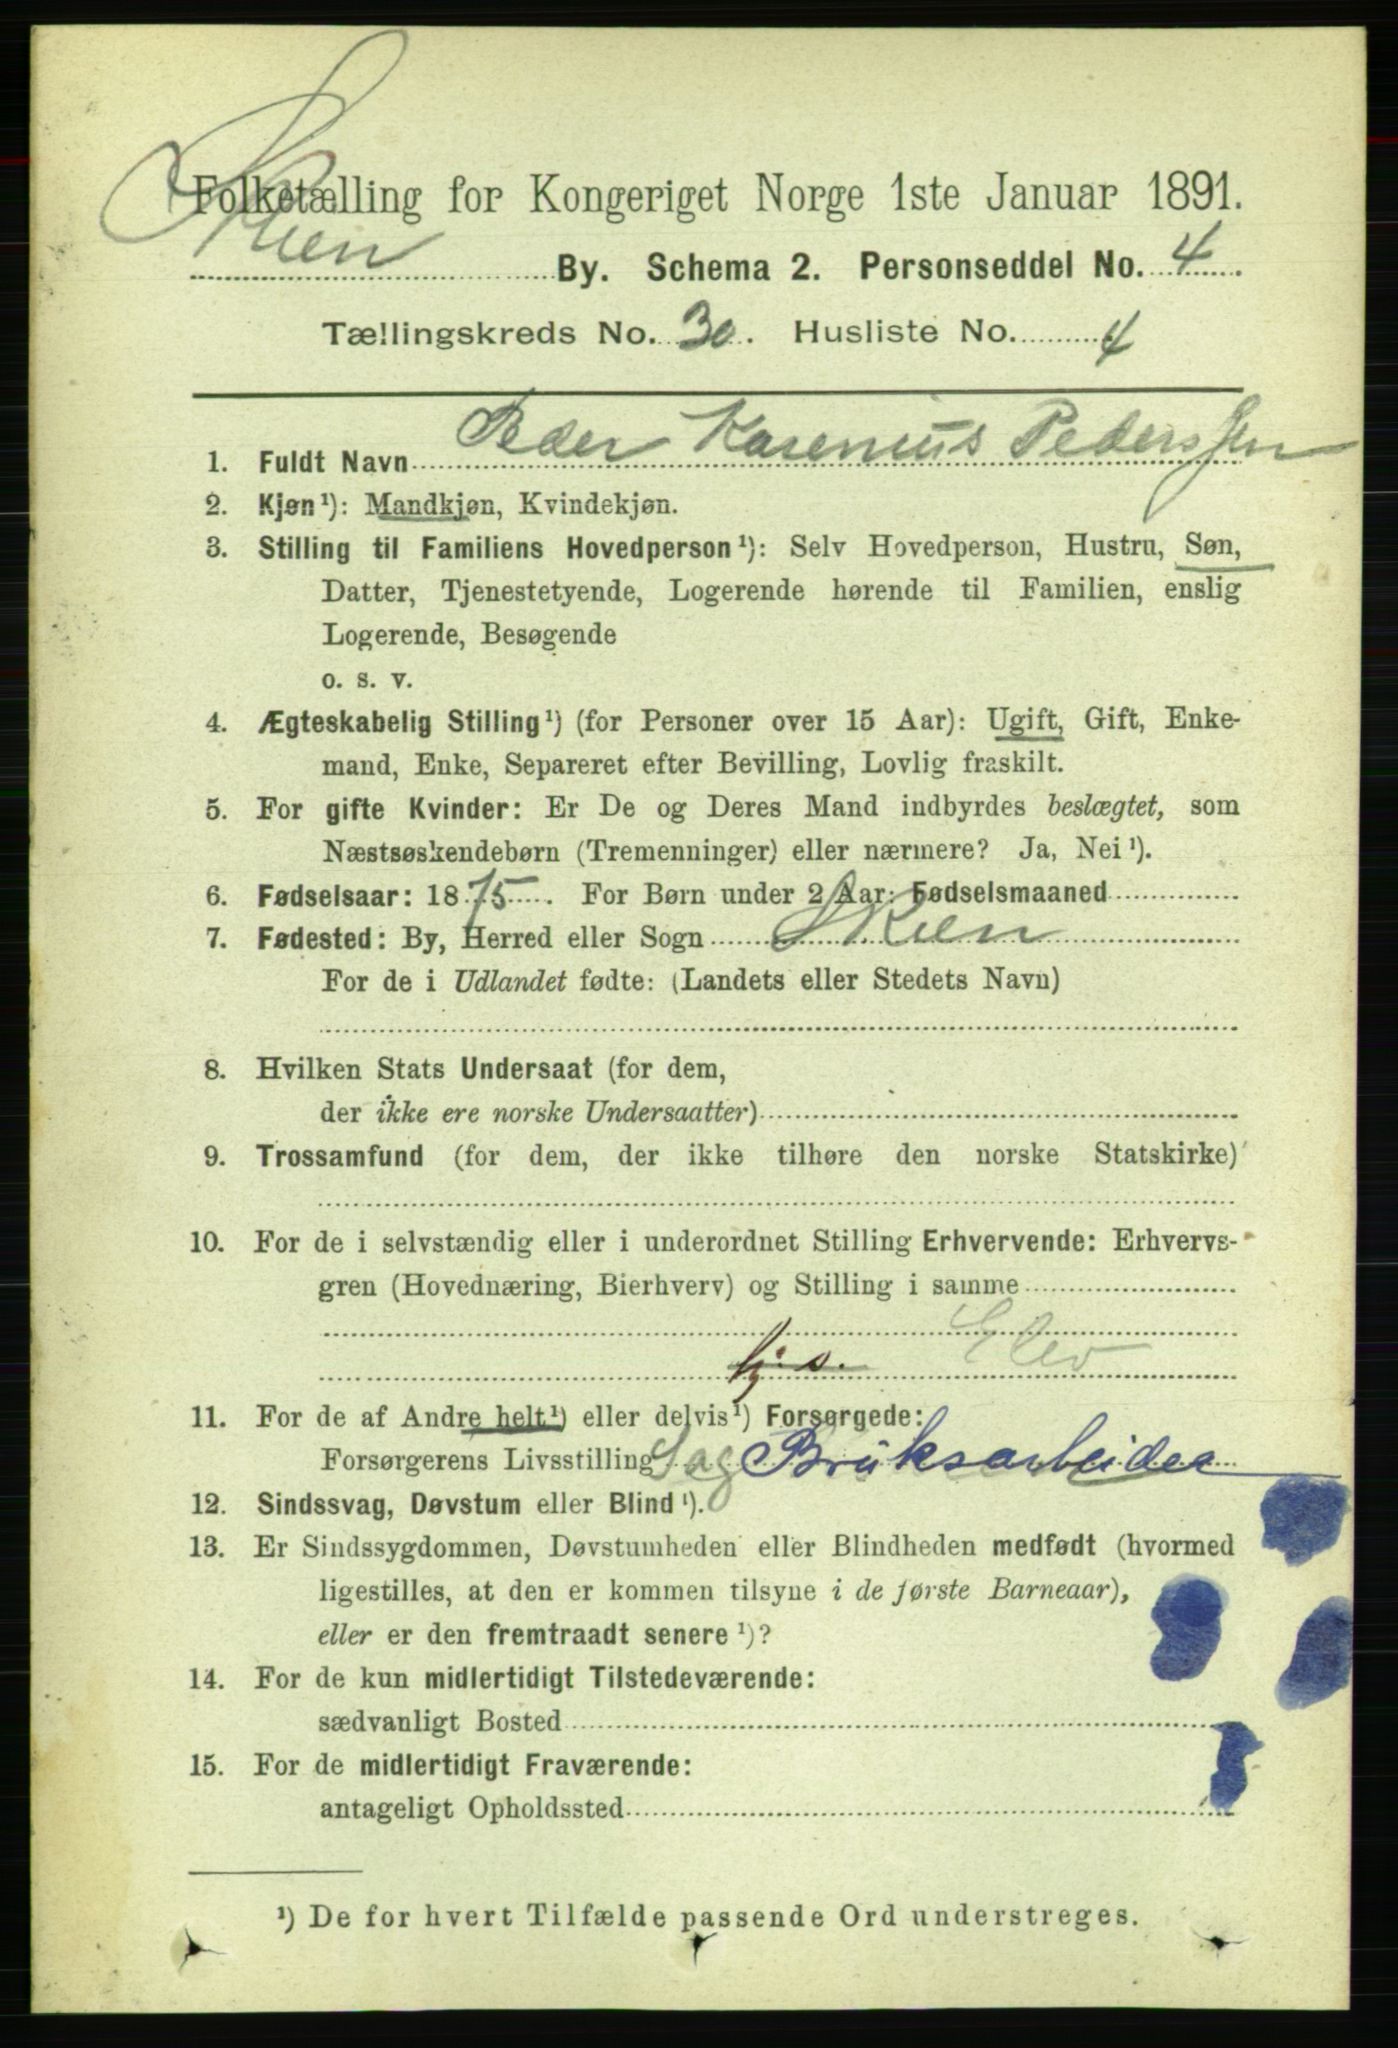 Folketælling for Kongeriget Norge 1ste Januar 1891.
Skien By. Schema 2. Personseddel No. 4
Tællingskreds No. 30. Husliste No. 4
1. Fuldt Navn Peder Karenius Pederssen
2. Kjøn¹): Mandkjøn, Kvindekjøn.
3. Stilling til Familiens Hovedperson¹): Selv Hovedperson, Hustru, Søn,
Datter, Tjenestetyende, Logerende hørende til Familien, enslig
Logerende, Besøgende
o. s. v.
4. Ægteskabelig Stilling¹) (for Personer over 15 Aar): Ugift, Gift, Enke-
mand, Enke, Separeret efter Bevilling, Lovlig fraskilt.
5. For gifte Kvinder: Er De og Deres Mand indbyrdes beslægtet, som
Næstsøskendebørn (Tremenninger) eller nærmere? Ja, Nei¹).
6. Fødselsaar: 1875. For Børn under 2 Aar: Fødselsmaaned
7. Fødested: By, Herred eller Sogn Skien
For de i Udlandet fødte: (Landets eller Stedets Navn)
8. Hvilken Stats Undersaat (for dem,
der ikke ere norske Undersaatter)
9. Trossamfund (for dem, der ikke tilhøre den norske Statskirke)
10. For de i selvstændig eller i underordnet Stilling Erhvervende: Erhvervs-
gren (Hovednæring, Bierhverv) og Stilling i samme
hj. s. Elev
11. For de af Andre helt¹) eller delvis¹) Forsørgede:
Forsørgerens Livsstilling Sag Brüksarbeider
12. Sindssvag, Døvstum eller Blind¹).
13. Er Sindssygdommen, Døvstumheden eller Blindheden medfødt (hvormed
ligestilles, at den er kommen tilsyne i de første Barneaar),
eller er den fremtraadt senere¹)?
14. For de kun midlertidigt Tilstedeværende:
sædvanligt Bosted
15. For de midlertidigt Fraværende:
antageligt Opholdssted
¹) De for hvert Tilfælde passende Ord understreges.